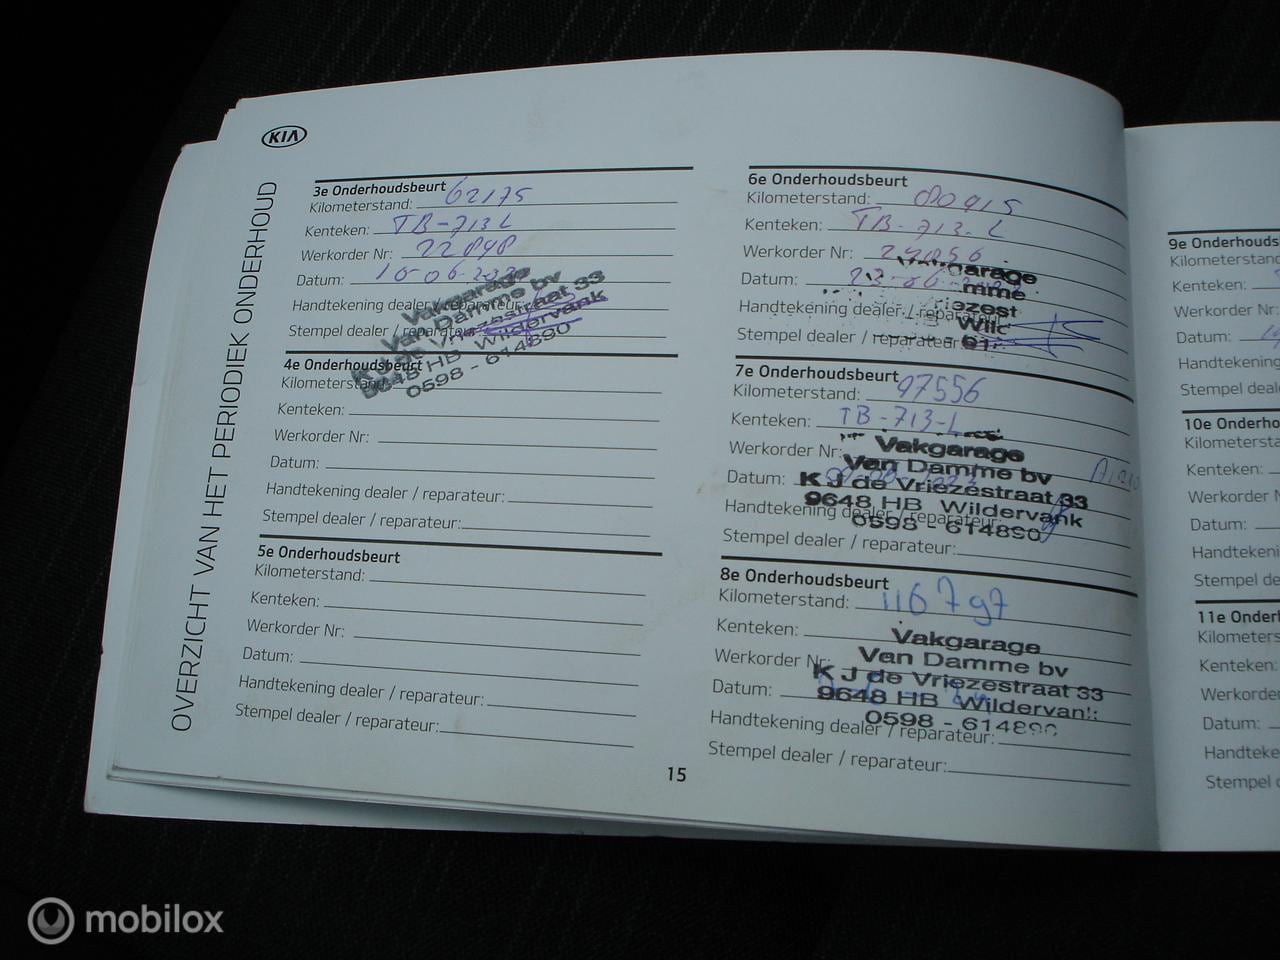 KIA
OVERZICHT VAN HET PERIODIEK ONDERHOUD
3e Onderhoudsbeurt
Kilometerstand: 62175
Kenteken: TB-713-L
Werkorder Nr:
Datum: 10-06-
Handtekening dealer / reparateur:
Stempel dealer / reparateur:
Vakgarage
Van Damme bv
K J de Vriezestraat 33
9648 HB Wildervank
0598 - 614890
4e Onderhoudsbeurt
Kilometerstand:
Kenteken:
Werkorder Nr:
Datum:
Handtekening dealer / reparateur:
Stempel dealer / reparateur:
5e Onderhoudsbeurt
Kilometerstand:
Kenteken:
Werkorder Nr:
Datum:
Handtekening dealer / reparateur:
Stempel dealer / reparateur:
6e Onderhoudsbeurt
Kilometerstand: 80915
Kenteken: TB-713-L
Werkorder Nr:
Datum: 23-06-
Handtekening dealer / reparateur:
Stempel dealer / reparateur:
7e Onderhoudsbeurt
Kilometerstand: 97556
Kenteken: TB-713-L
Werkorder Nr:
Datum:
Handtekening dealer / reparateur:
Stempel dealer / reparateur:
Vakgarage
Van Damme bv
K J de Vriezestraat 33
9648 HB Wildervank
0598 - 614890
8e Onderhoudsbeurt
Kilometerstand: 116797
Kenteken:
Werkorder Nr:
Datum:
Handtekening dealer / reparateur:
Stempel dealer / reparateur:
Vakgarage
Van Damme bv
K J de Vriezestraat 33
9648 HB Wildervan
0598 - 614890
15
9e Onderhouds
Kilometerstan
Kenteken:
Werkorder Nr
Datum:
Handtekening
Stempel deal
10e Onderho
Kilometersta
Kenteken:
Werkorder N
Datum:
Handtekenin
Stempel dea
11e Onder
Kilometers
Kenteken:
Werkorder
Datum:
Handteke
Stempel d
mobilox